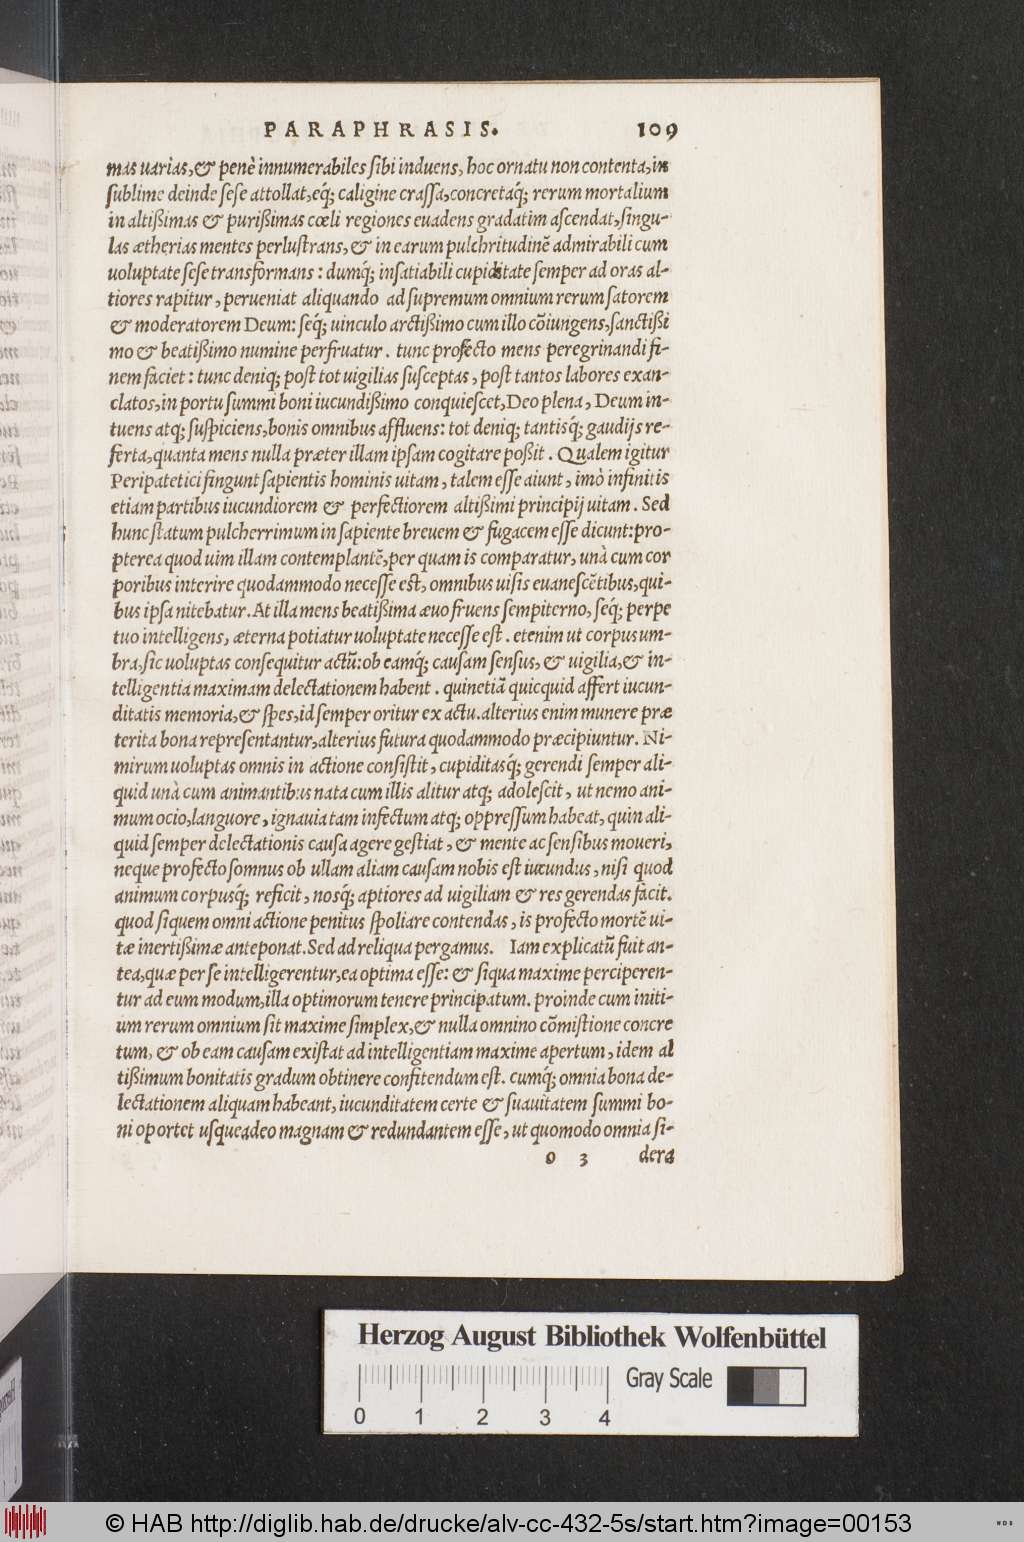 PARAPHRASIS. 109
mas uarias,& penè innumerabiles sibi induens, hoc ornatu non contenta,in
sublime deinde sese attollat,eq́; caligine crassa,concretaq́; rerum mortalium
in altißimas & purißimas cœli regiones euadens gradatim ascendat,singu-
las ætherias mentes perlustrans,& in earum pulchritudinē admirabili cum
uoluptate sese transformans : dumq́; insatiabili cupiditate semper ad oras al-
tiores rapitur, perueniat aliquando ad supremum omnium rerum satorem
& moderatorem Deum: seq́; uinculo arctißimo cum illo cōiungens,sanctißi
mo & beatißimo numine perfruatur. tunc profecto mens peregrinandi fi-
nem faciet : tunc deniq; post tot uigilias susceptas, post tantos labores exan-
clatos,in portu summi boni iucundißimo conquiescet,Deo plena, Deum in-
tuens atq; suspiciens,bonis omnibus affluens: tot deniq; tantisq́; gaudijs re-
ferta,quanta mens nulla præter illam ipsam cogitare poßit. Qualem igitur
Peripatetici fingunt sapientis hominis uitam, talem esse aiunt, imò infinitis
etiam partibus iucundiorem & perfectiorem altißimi principij uitam. Sed
hunc statum pulcherrimum in sapiente breuem & fugacem esse dicunt:pro-
pterea quod uim illam contemplantē,per quam is comparatur, unà cum cor
poribus interire quodammodo necesse est, omnibus uisis euanescētibus,qui-
bus ipsa nitebatur. At illa mens beatißima æuo fruens sempiterno, seq́; perpe
tuo intelligens, æterna potiatur uoluptate necesse est. etenim ut corpus um-
bra,sic uoluptas consequitur actū:ob eamq́; causam sensus,& uigilia,& in-
telligentia maximam delectationem habent. quinetiā quicquid affert iucun-
ditatis memoria,& spes,id semper oritur ex actu.alterius enim munere præ
terita bona repræsentantur,alterius futura quodammodo præcipiuntur. Ni-
mirum uoluptas omnis in actione consistit, cupiditasq́; gerendi semper ali-
quid unà cum animantibus nata cum illis alitur atq; adolescit, ut nemo ani-
mum ocio,languore, ignauia tam infectum atq; oppressum habeat, quin ali-
quid semper delectationis causa agere gestiat, & mente ac sensibus moueri,
neque profecto somnus ob ullam aliam causam nobis est iucundus, nisi quod
animum corpusq́; reficit, nosq́; aptiores ad uigiliam & res gerendas facit.
quod siquem omni actione penitus spoliare contendas, is profecto mortē ui-
tæ inertißimæ anteponat. Sed ad reliqua pergamus. Iam explicatū fuit an-
tea,quæ per se intelligerentur,ea optima esse: & siqua maxime perciperen-
tur ad eum modum,illa optimorum tenere principatum. proinde cum initi-
um rerum omnium sit maxime simplex,& nulla omnino cōmistione concre
tum, & ob eam causam existat ad intelligentiam maxime apertum, idem al
tißimum bonitatis gradum obtinere confitendum est. cumq́; omnia bona de-
lectationem aliquam habeant, iucunditatem certe & suauitatem summi bo-
ni oportet usqueadeo magnam & redundantem esse, ut quomodo omnia si-
o 3 dera
Herzog August Bibliothek Wolfenbüttel
Gray Scale
0 1 2 3 4
© HAB http://diglib.hab.de/drucke/alv-cc-432-5s/start.htm?image=00153